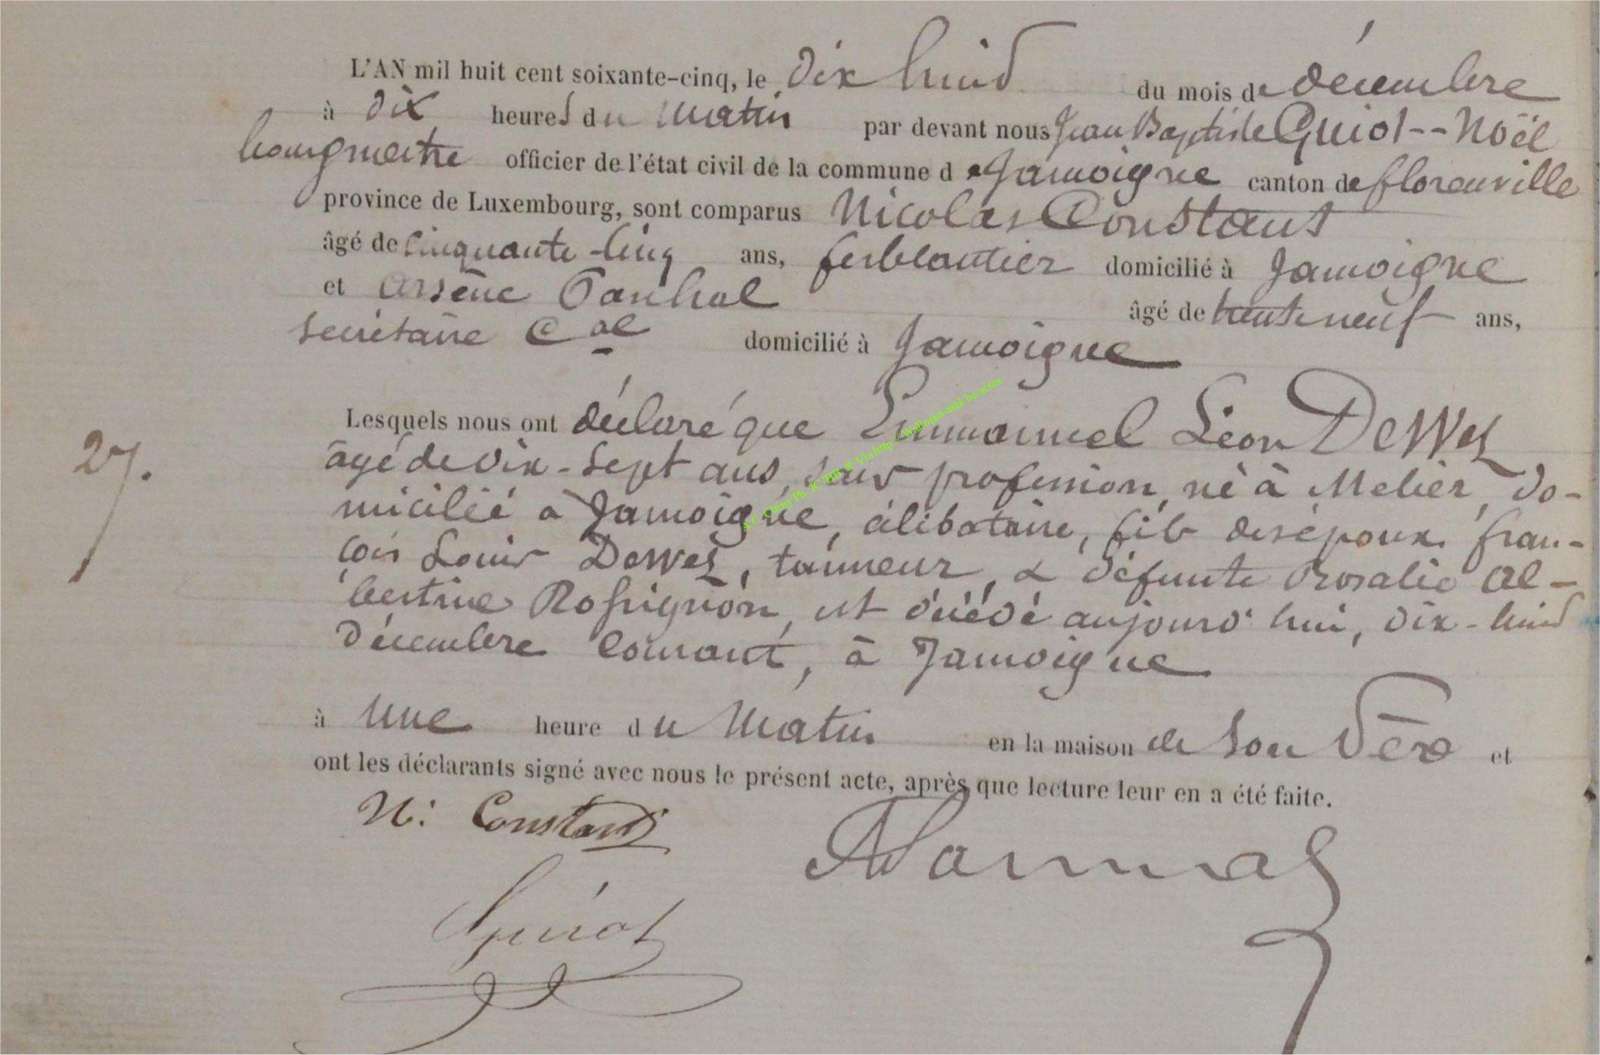 L'AN mil huit cent soixante-cinq, le dix huit du mois de décembre
à dix heures du matin par devant nous Jean Baptiste Guiot--Noël
bourgmestre officier de l'état civil de la commune de Jamoigne canton de florenville
province de Luxembourg, sont comparus Nicolas Constant
âgé de cinquante-cinq ans, ferblantier domicilié à Jamoigne
et Arsène âgé de trente neuf ans,
secrétaire Cal domicilié à Jamoigne
Lesquels nous ont déclaré que Emmanuel Léon DeWez
27. âgé de dix-sept ans, sans profession, né à Melier, do-
micilié à Jamoigne, célibataire, fils des époux fran-
çois Louis Dewez, tanneur, & défunte Rosalie Al-
bertine Rossignon, est décédé aujourd'hui, dix-huit
décembre courant, à Jamoigne
à une heure du matin en la maison de son Père et
ont les déclarants signé avec nous le présent acte, après que lecture leur en a été faite.
N: Constant
Guiot